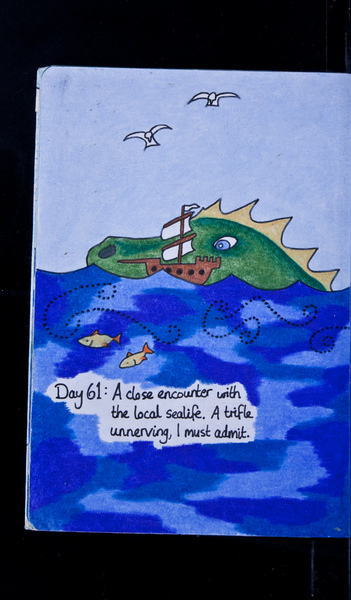 Day 61: A close encounter with
the local sealife. A trifle
unnerving, I must admit.